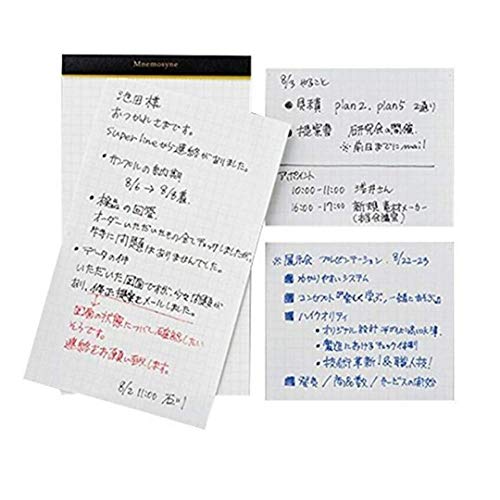 Mnemosyne
池田様
おつかれさまです。
Super lineから連絡がありました。
・サンプルの納期
8/6 → 8/8着
・検品の回答
オーダーいただいたもの全てチェックしましたが、
特に問題はありませんでした。
・データの件
いただいた図面ですが少々問題が
あり、修正提案をメールしました。
図面の状態について確認したい
そうです。
連絡をお願い致します。
8/2 11:00 石川
8/3 やること
● 見積 plan2. plan5 2通り
● 提案書 研究会の開催
※前日までにmail
アポイント
10:00-11:00 浅井さん
16:00-17:00 新規 電材メーカー
※展示会 プレゼンテーション 8/22-23
わかりやすいシステム
コンセプト『楽しく学ぶ。一緒にあそぶ』
ハイクオリティ
・オリジナル設計
・製造におけるチェック体制
・技術革新！&職人技！
発売 / 商品数 / サービスの開始